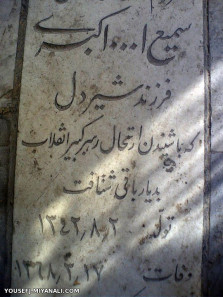 سمیع ا... اکبری
فرزند شیردل
که باشنیدن ارتحال رهبر کبیر انقلاب
بدیار باقی شتافت
تولد: ۱۳۴۲٫۸٫۲
وفات: ۱۳۶۸٫۳٫۱۷
YOUSEFJ.MIYANALI.COM